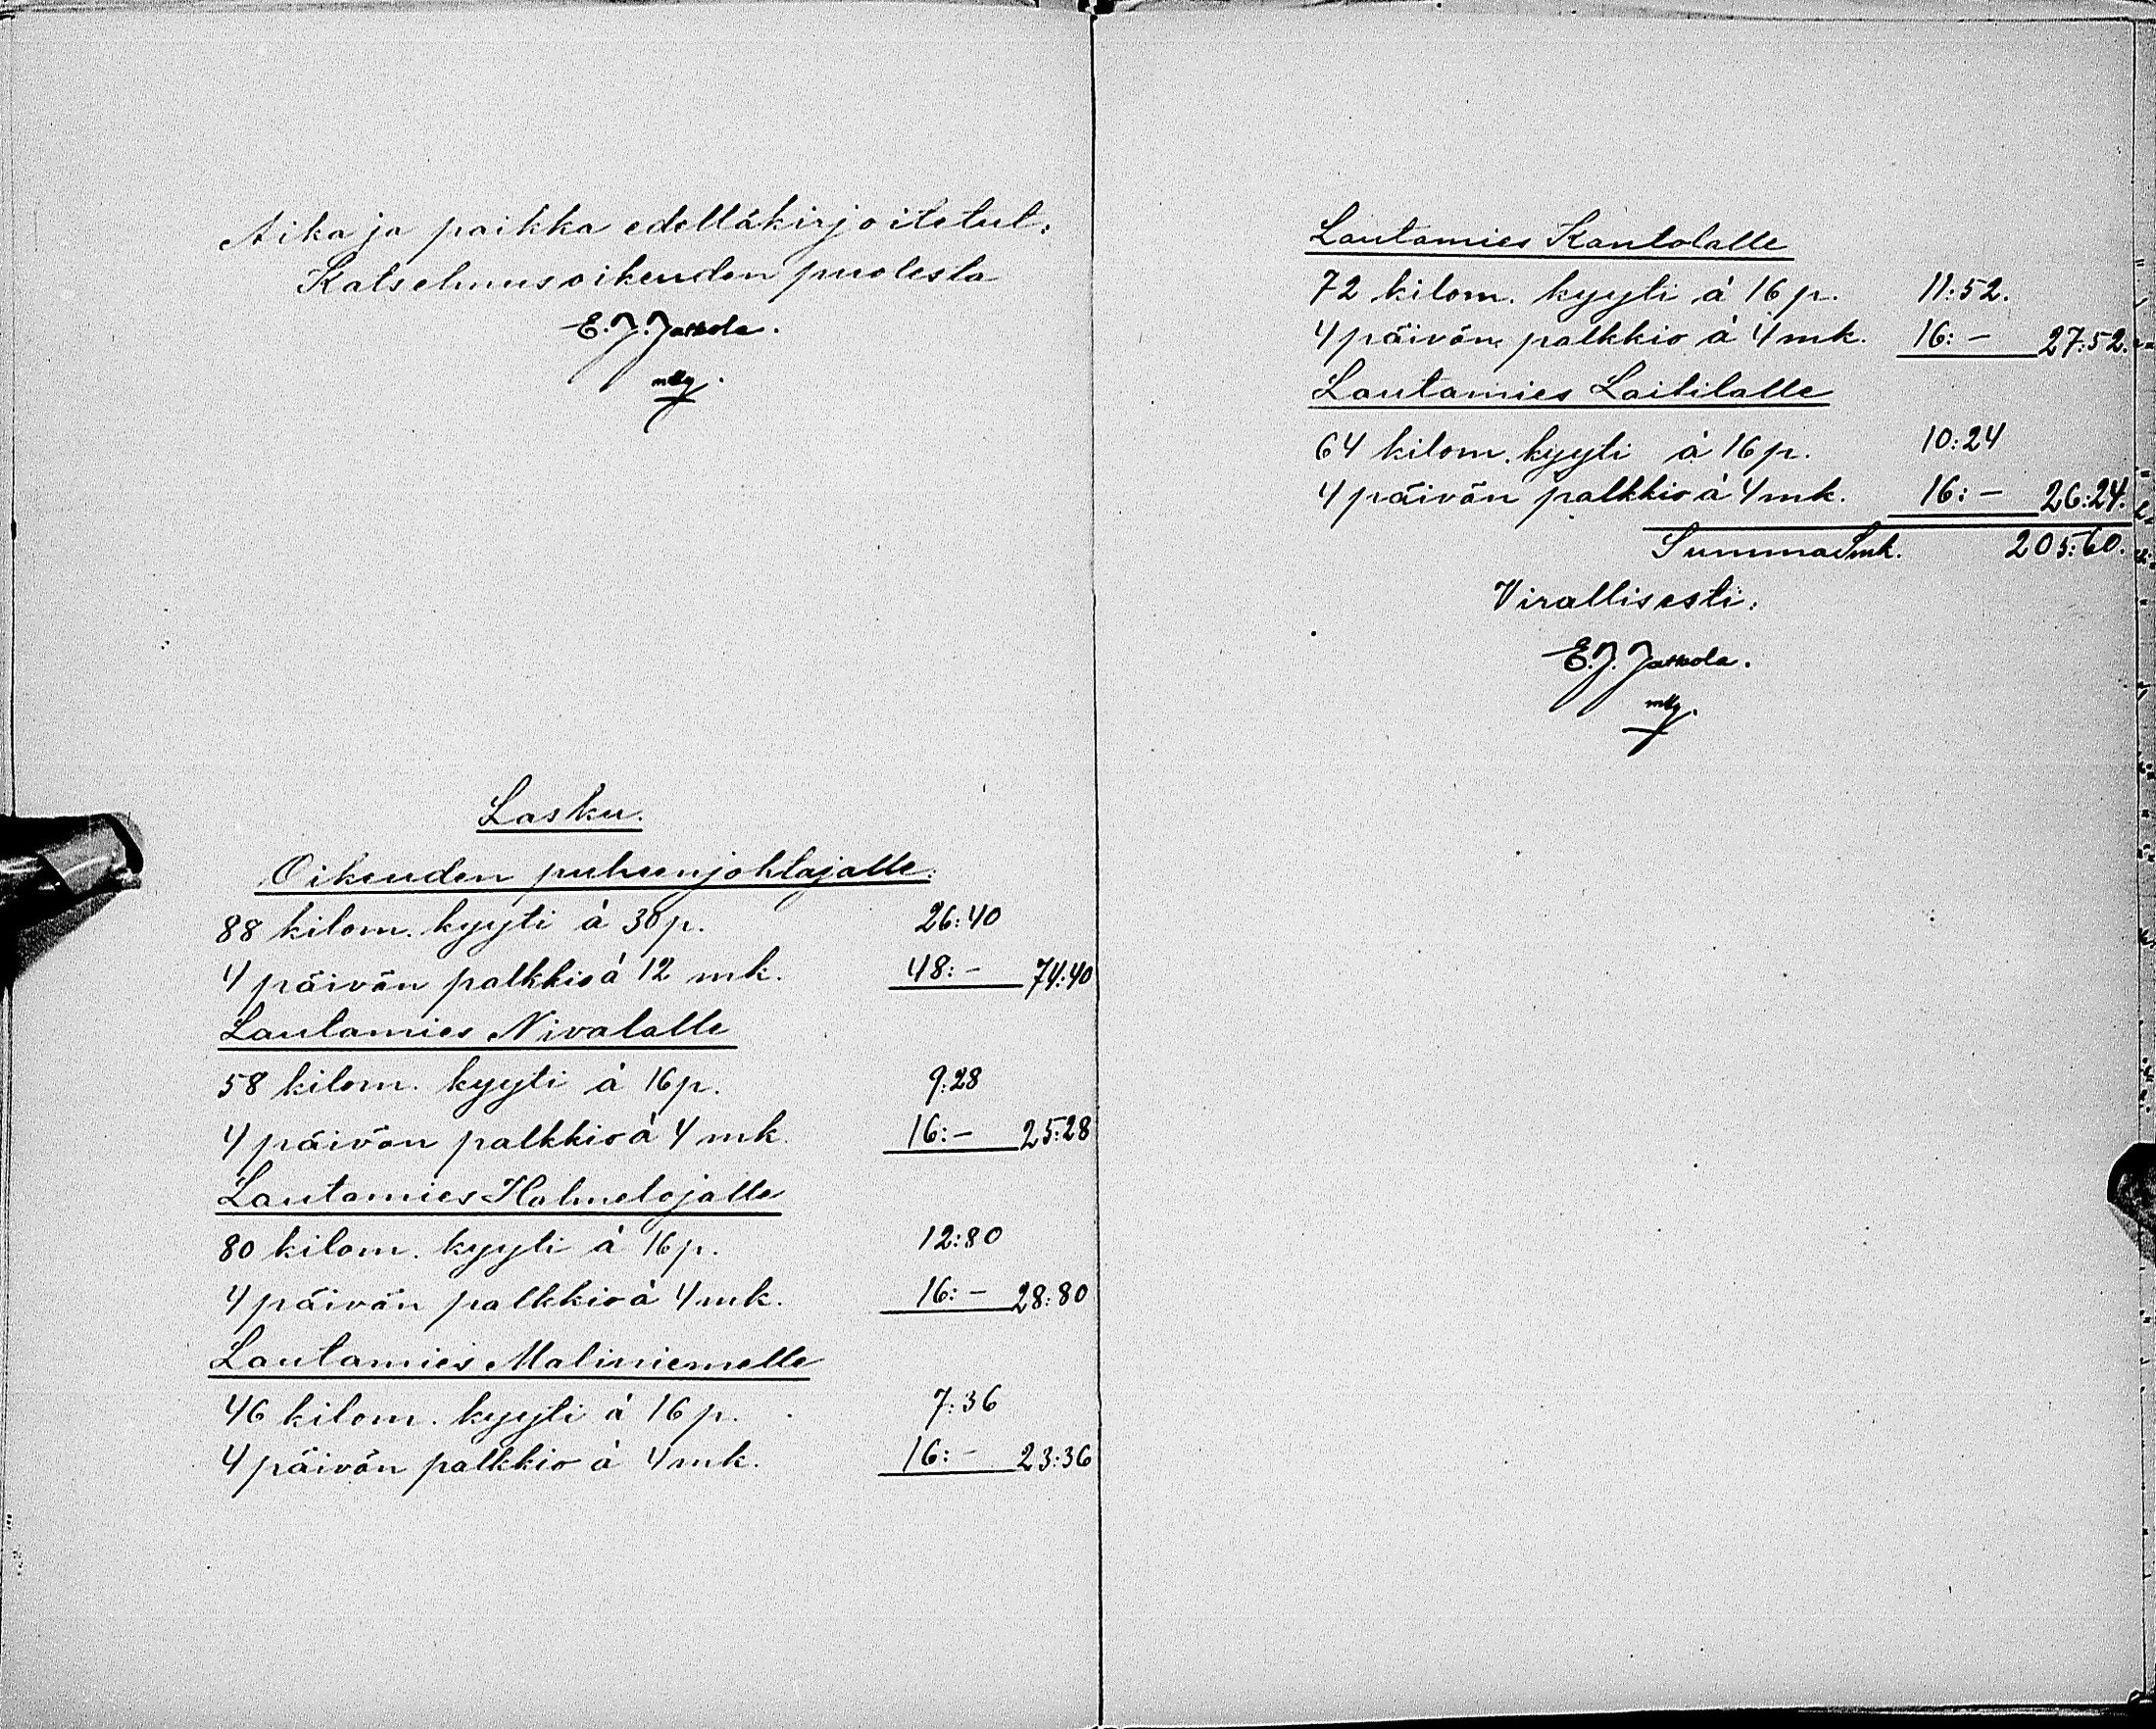 Aika ja paikka edelläkirjoitetut.
Katselmusoikeuden puolesta
E. J. Jaakola.
mtlg.
Lasku.
Oikeuden puheenjohtajalle:
88 kilom. kyyti á 30 p. 26:40
4 päivän palkkio á 12 mk. 48:- 74:40
Lautamies Nivalalle
58 kilom. kyyti á 16 p. 9:28
4 päivän palkkio á 4 mk. 16:- 25:28
Lautamies Halmelojalle
80 kilom. kyyti á 16 p. 12:80
4 päivän palkkio á 4 mk. 16:- 28:80
Lautamies Maliniemelle
46 kilom. kyyti á 16 p. 7:36
4 päivän palkkio á 4 mk. 16:- 23:36
Lautamies Kantolalle
72 kilom. kyyti á 16 p. 11:52.
4 päivän palkkio á 4 mk. 16:- 27:52.
Lautamies Laitilalle
64 kilom. kyyti á 16 p. 10:24
4 päivän palkkio á 4 mk. 16:- 26:24.
Summa Smk. 205:60.
Virallisesti:
E. J. Jaakola.
mtlg.